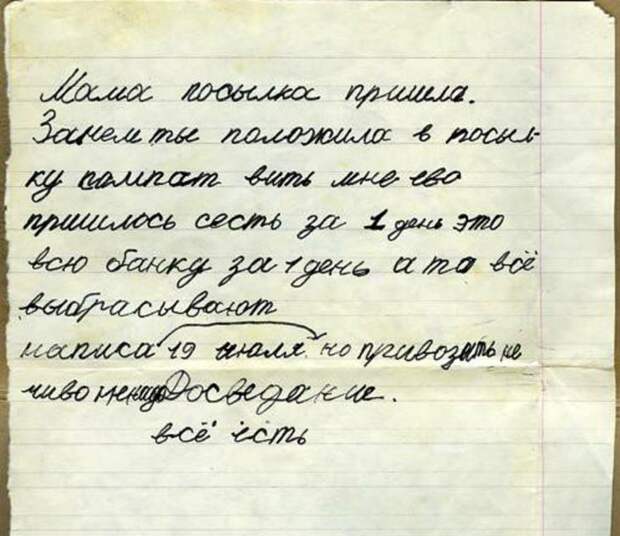 Мама посылка пришла.
Зачем ты положила в посыл-
ку компат вить мне ево
пришлось сесть за 1 день это
всю банку за 1 день а то всё
выбрасывают
написа 19 июля. но привозить не
чиво не надо Досведание.
всё есть